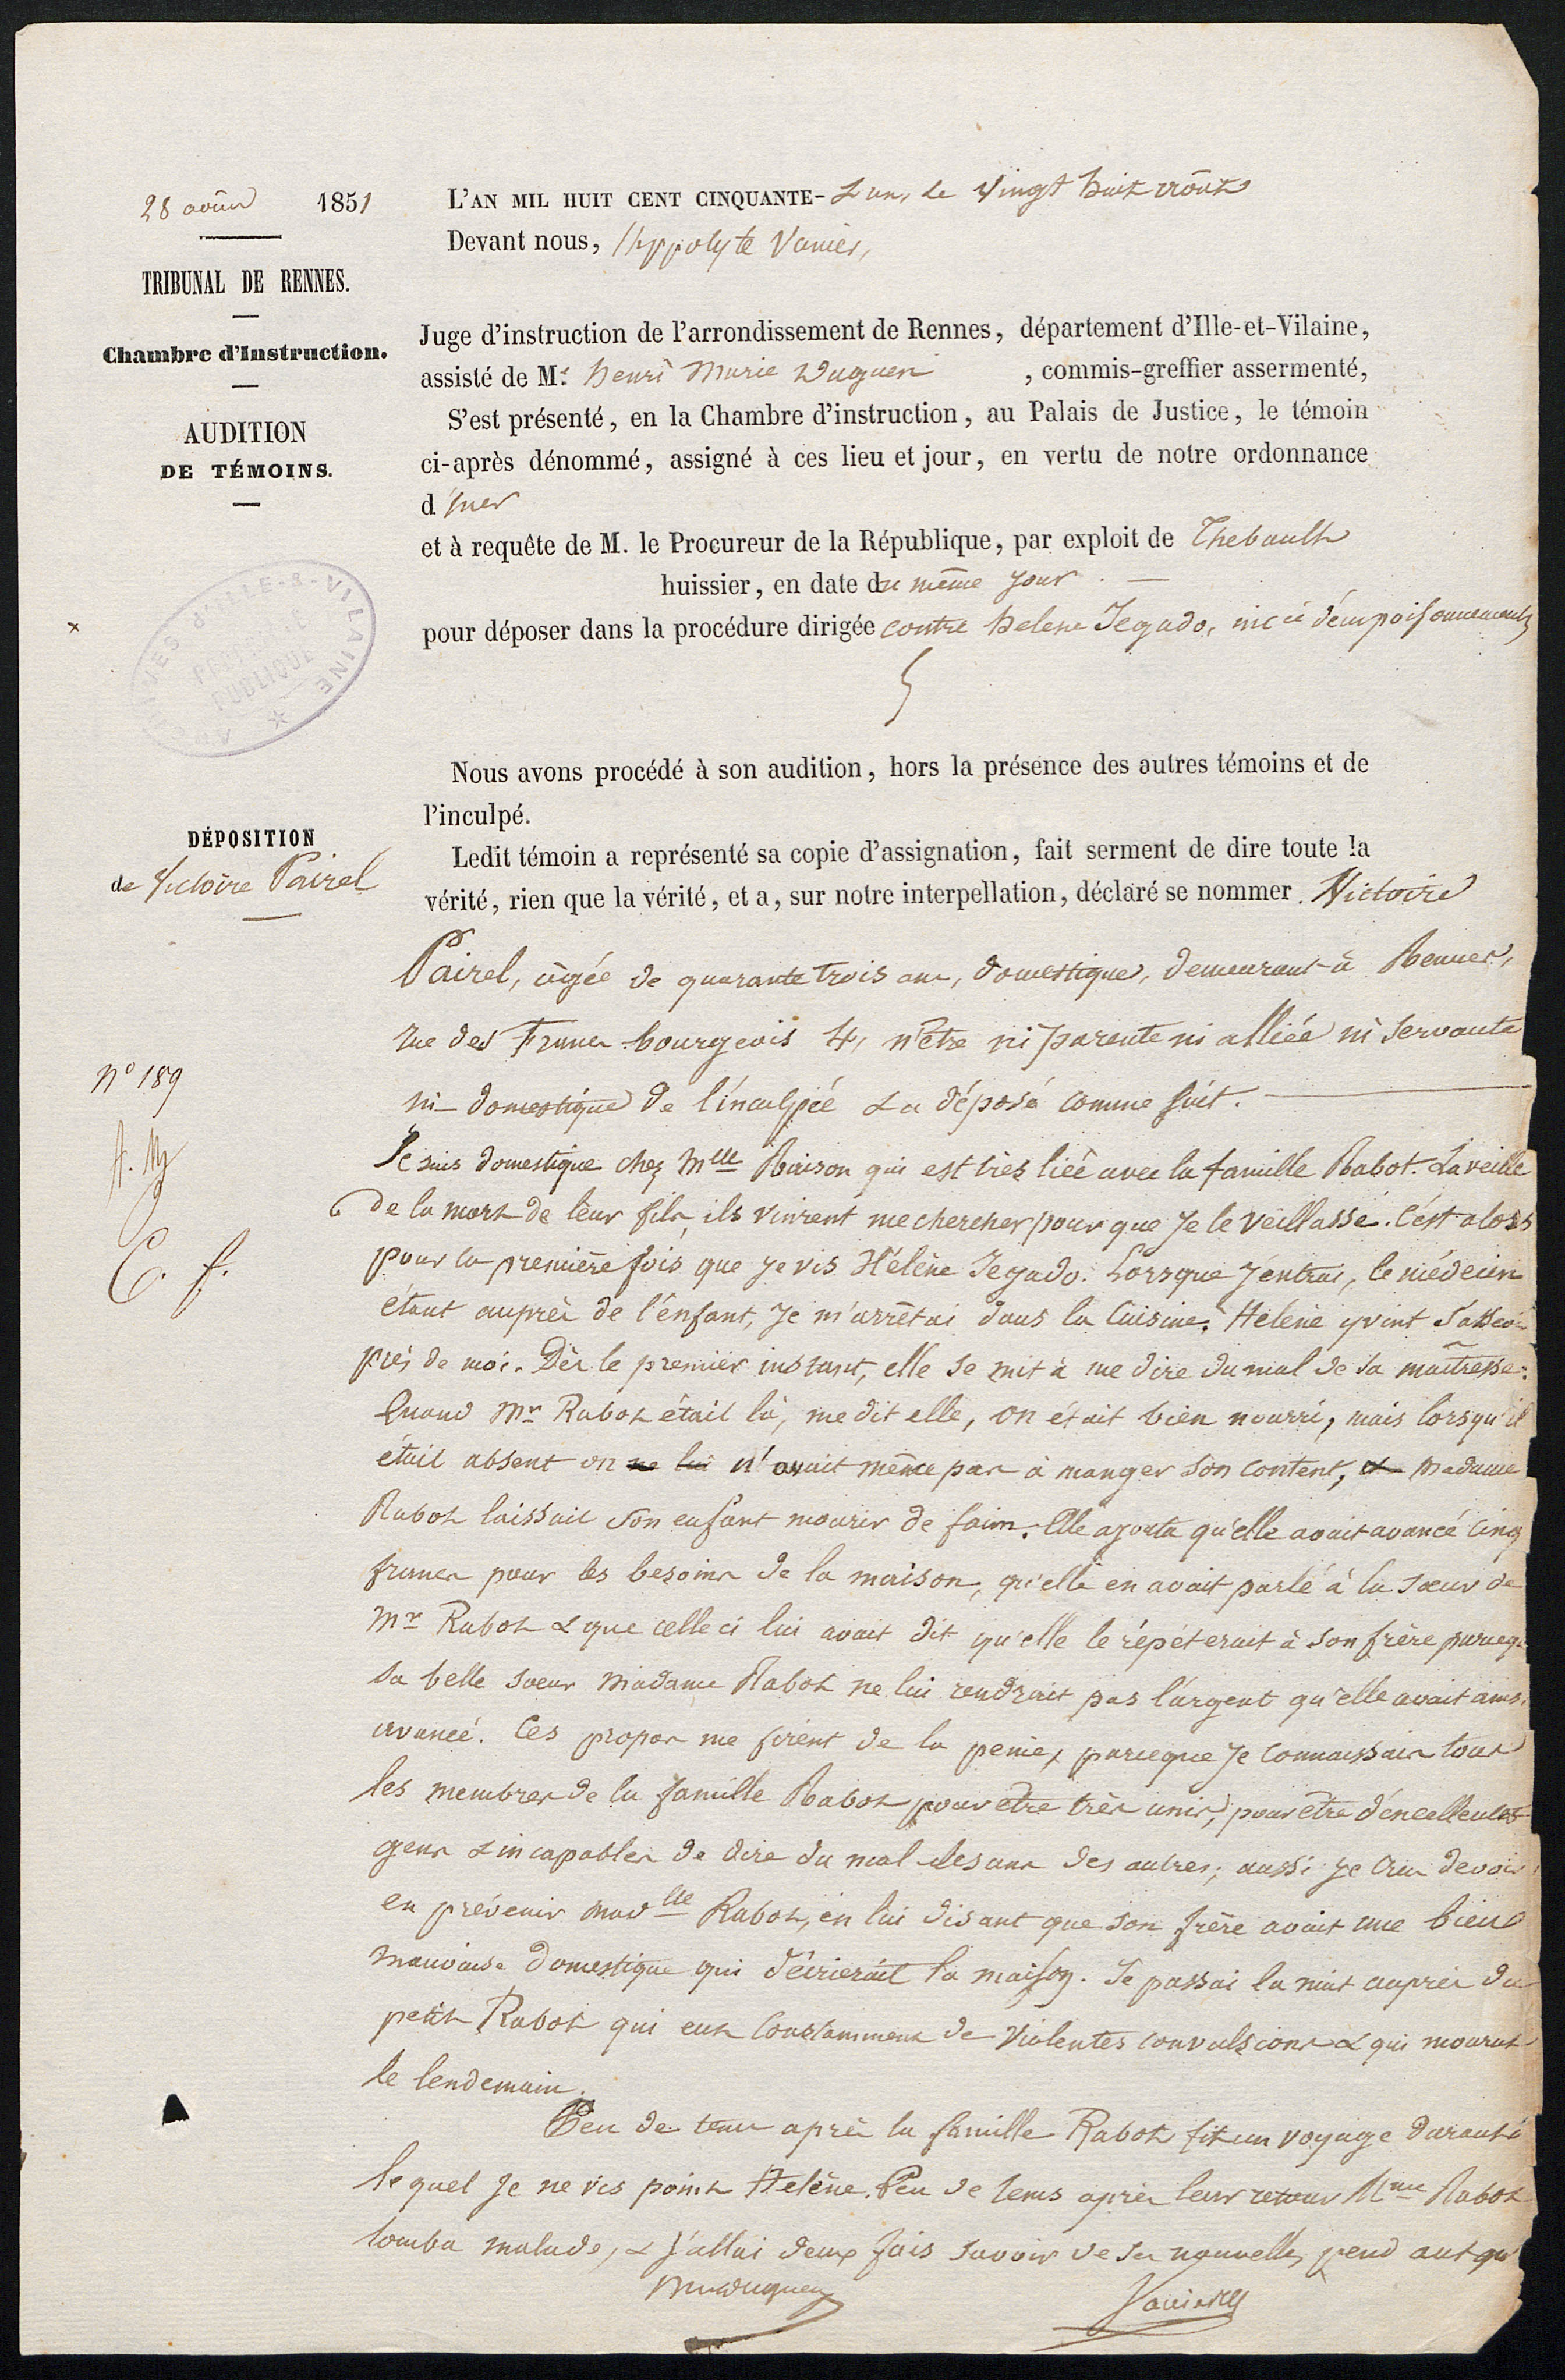 28 août 1851
TRIBUNAL DE RENNES.
Chambre d'Instruction.
AUDITION
DE TÉMOINS.
L'AN MIL HUIT CENT CINQUANTE- & un, le vingt huit août
Devant nous, hyppolyte Vanier,
Juge d'instruction de l'arrondissement de Rennes, département d'Ille-et-Vilaine,
assisté de Mr. henri Marie Duguen, commis-greffier assermenté,
S'est présenté, en la Chambre d'instruction, au Palais de Justice, le témoin
ci-après dénommé, assigné à ces lieu et jour, en vertu de notre ordonnance
d'hier
et à requête de M. le Procureur de la République, par exploit de Thebault
huissier, en date du même jour. —
pour déposer dans la procédure dirigée contre helene Jegado, d'empoisonnements
ARCHIVES D'ILLE-&-VILAINE
PUBLIQUE
Nous avons procédé à son audition, hors la présence des autres témoins et de
l'inculpé.
DÉPOSITION
de Victoire Pairel
Ledit témoin a représenté sa copie d'assignation, fait serment de dire toute la
vérité, rien que la vérité, et a, sur notre interpellation, déclaré se nommer Victoire
Pairel, agée de quarante trois ans, domestique, demeurant à Rennes,
rue des Francs bourgeois 4, n'être ni parente ni alliée ni servante
ni domestique de l'inculpée & a déposé comme suit.
n° 189
Je suis domestique chez Melle Raison qui est très liée avec la famille Rabot. La veille
de la mort de leur fils, ils vinrent me chercher pour que je le veillasse. C'est alors
pour la première fois que je vis Hélène Jegado. Lorsque j'entrai, le médecin
étant auprès de l'enfant, je m'arrêtai dans la cuisine. Hélène y vint s'asseoir
près de moi. Dès le premier instant, elle se mit à me dire du mal de sa maîtresse.
Quand Mr Rabot était là, me dit elle, on était bien nourri, mais lorsqu'il
était absent on ne lui n'avait même pas à manger son content, & Madame
Rabot laissait son enfant mourir de faim. Elle ajouta qu'elle avait avancé cinq
francs pour les besoins de la maison, qu'elle en avait parlé à la soeur de
Mr Rabot & que celle ci lui avait dit qu'elle le répéterait à son frère parceque
sa belle soeur Madame Rabot ne lui rendrait pas l'argent qu'elle avait ainsi
avancé. Ces propos me firent de la peine, parceque je connaissais tous
les membres de la famille Rabot pour être très unis, pour être d'excellentes
gens & incapables de dire du mal les uns des autres; aussi je crus devoir
en prévenir Madlle Rabot, en lui disant que son frère avait une bien
mauvaise domestique qui décrierait la maison. Je passai la nuit auprès du
petit Rabot qui eut constamment de violentes convulsions & qui mourut
le lendemain.
Peu de tems après la famille Rabot fit un voyage durant
lequel je ne vis point Helène. Peu de tems après leur retour Mme Rabot
tomba malade, & j'allai deux fois savoir de ses nouvelles, pendant qu'
hmduguen
Vanier